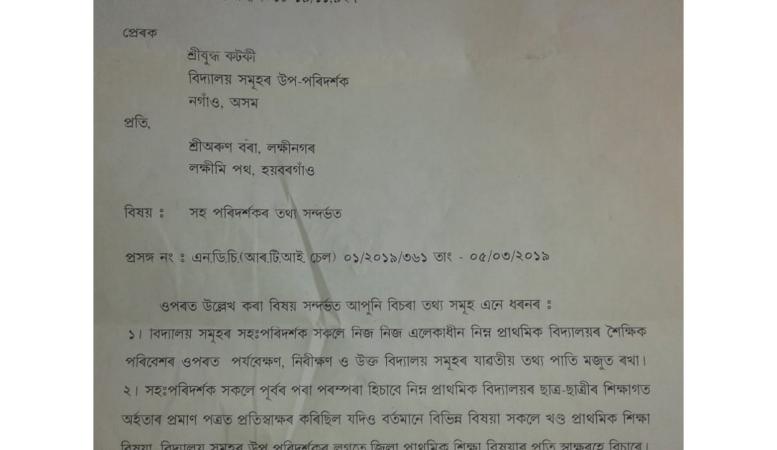 প্ৰেৰক
শ্ৰীবুদ্ধ কটকী
বিদ্যালয় সমূহৰ উপ-পৰিদৰ্শক
নগাঁও, অসম
প্ৰতি,
শ্ৰীঅৰুণ বৰা, লক্ষীনগৰ
লক্ষীমি পথ, হয়বৰগাঁও
বিষয় : সহ পৰিদৰ্শকৰ তথ্য সন্দৰ্ভত
প্ৰসঙ্গ নং : এন.ডি.চি.(আৰ.টি.আই. চেল) ০১/২০১৯/৩৬১ তাং - ০৫/০৩/২০১৯
ওপৰত উল্লেখ কৰা বিষয় সন্দৰ্ভত আপুনি বিচৰা তথ্য সমূহ এনে ধৰনৰ :
১। বিদ্যালয় সমূহৰ সহঃপৰিদৰ্শক সকলে নিজ নিজ এলেকাধীন নিম্ন প্ৰাথমিক বিদ্যালয়ৰ শৈক্ষিক
পৰিবেশৰ ওপৰত পৰ্যবেক্ষণ, নিৰীক্ষণ ও উক্ত বিদ্যালয় সমূহৰ যাবতীয় তথ্য পাতি মজুত ৰখা।
২। সহঃপৰিদৰ্শক সকলে পূৰ্বৰ পৰা পৰম্পৰা হিচাবে নিম্ন প্ৰাথমিক বিদ্যালয়ৰ ছাত্ৰ-ছাত্ৰীৰ শিক্ষাগত
অৰ্হতাৰ প্ৰমাণ পত্ৰত প্ৰতিস্বাক্ষৰ কৰিছিল যদিও বৰ্তমানে বিভিন্ন বিষয়া সকলে খণ্ড প্ৰাথমিক শিক্ষা
বিষয়া, বিদ্যালয় সমূহৰ উপ পৰিদৰ্শকৰ লগতে জিলা প্ৰাথমিক শিক্ষা বিষয়াৰ প্ৰতি স্বাক্ষৰহে বিচাৰে।